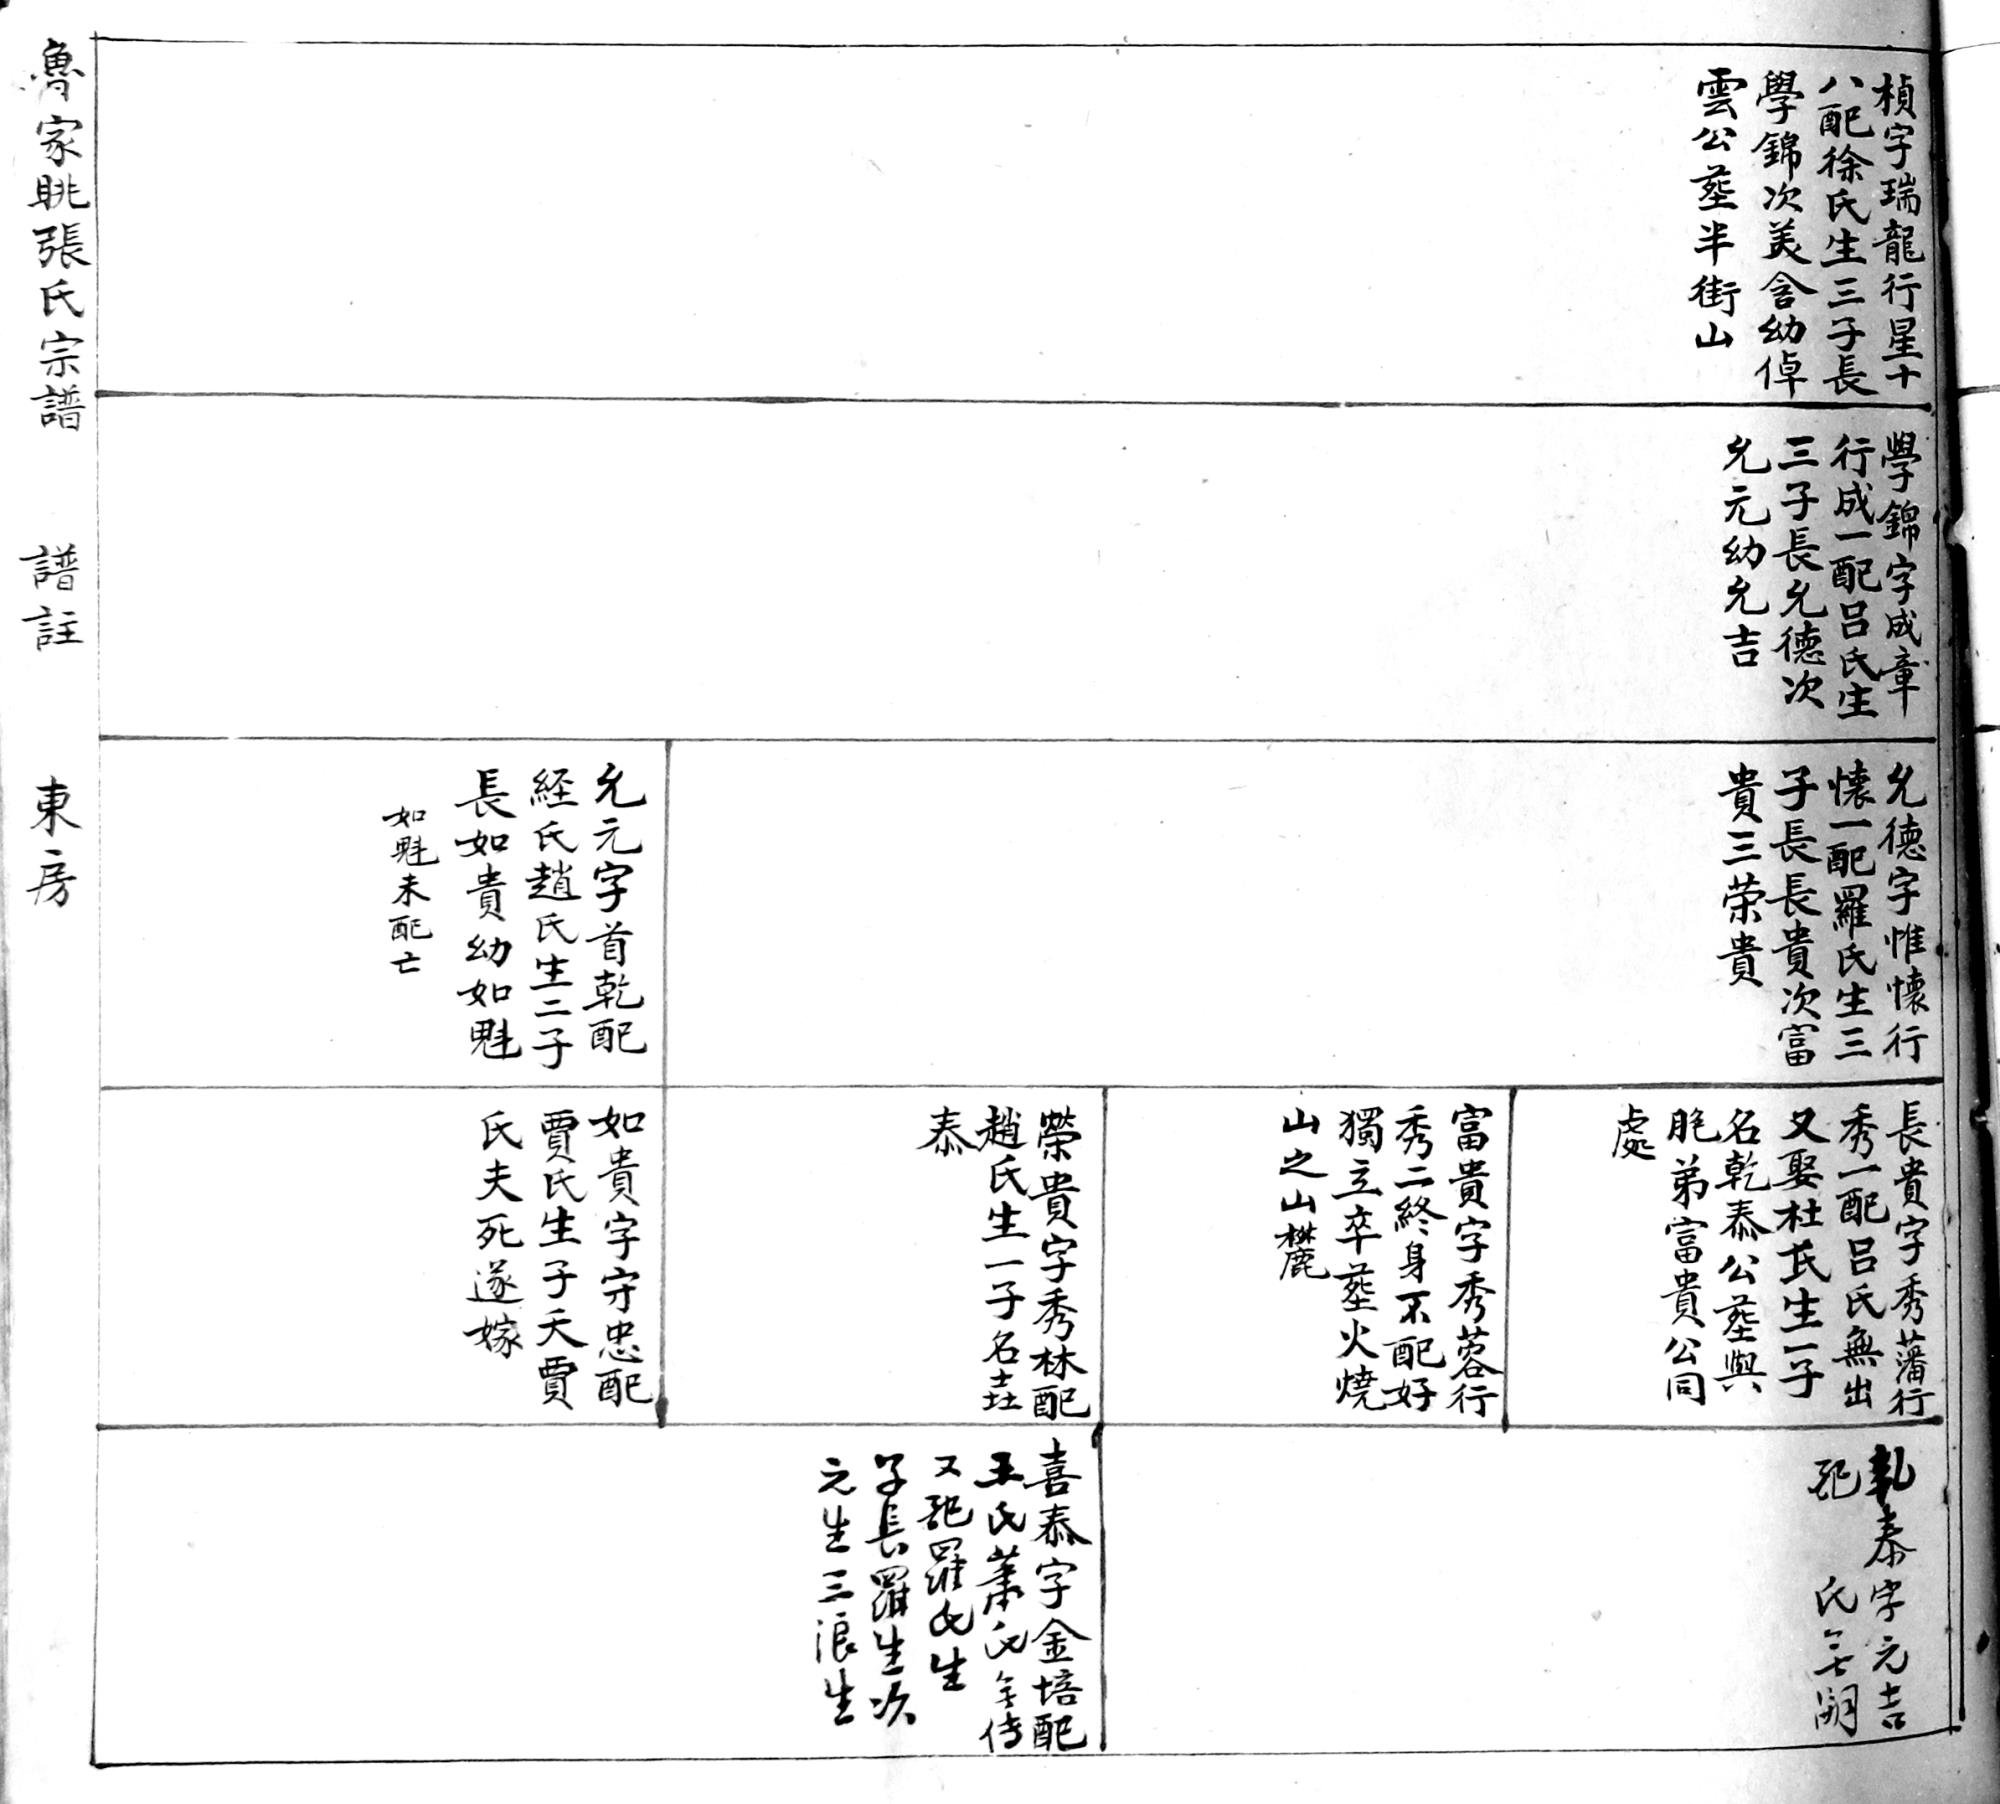 楨字瑞龍行星十
八配徐氏生三子長
學錦次美含幼倬
雲公塟半街山
學錦字成章
行成一配呂氏生
三子長允德次
允元幼允吉
允德字惟懷行
懷一配羅氏生三
子長長貴次富
貴三荣貴
允元字首乾配
経氏趙氏生二子
長如貴幼如魁
如魁未配亡
長貴字秀藩行
秀一配呂氏無出
又娶杜氏生一子
名乾泰公塟與
胞弟富貴公同
處
富貴字秀蓉行
秀二終身不配好
獨立卒塟火燒
山之山麓
榮貴字秀林配
趙氏生一子名㐂
泰
如貴字守忠配
賈氏生子夭賈
氏夫死遂嫁
乹泰字元吉
配 氏无嗣
喜泰字金培配
王氏萧氏无传
又配羅氏生
子長羅生次
元生三浪生
魯家眺張氏宗譜 譜註 東房